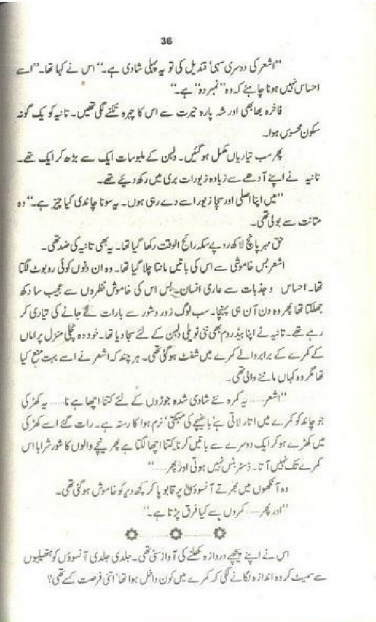 36
"اشعر کی دوسری سہی' قندیل کی تو یہ پہلی شادی ہے۔" اس نے کہا تھا۔ "اسے
احساس نہیں ہونا چاہئے کہ وہ "نمبر دو" ہے۔"
فاخرہ بھابھی اور شہ پارہ حیرت سے اس کا چہرہ تکنے لگی تھیں۔ تانیہ کو یک گونہ
سکون محسوس ہوا۔
پھر سب تیاریاں مکمل ہو گئیں۔ دلہن کے ملبوسات ایک سے بڑھ کر ایک تھے۔
تانیہ نے اپنے آدھے سے زیادہ زیورات بری میں رکھ دیئے تھے۔
"میں اپنا اصلی اور سچا زیور اسے دے رہی ہوں۔ یہ سونا چاندی کیا چیز ہے۔" وہ
متانت سے بولی تھی۔
حق مہر پانچ لاکھ روپے سکہ رائج الوقت رکھا گیا تھا۔ یہ بھی تانیہ کی ضد تھی۔
اشعر بس خاموشی سے اس کی باتیں مانتا چلا گیا تھا۔ وہ ان دنوں کوئی روبوٹ لگتا
تھا۔ احساس و جذبات سے عاری انسان۔ بس اس کی خاموش نظروں سے عجیب سا دکھ
جھلکتا تھا پھر وہ دن آن ہی پہنچا۔ سب لوگ زور و شور سے بارات لے جانے کی تیاری کر
رہے تھے۔ تانیہ نے اپنا بیڈ روم بھی نئی نویلی دلہن کے لئے سجا دیا تھا۔ خود وہ نچلی منزل پر اماں
کے کمرے کے برابر والے کمرے میں شفٹ ہو گئی تھی۔ ہر چند کہ اشعر نے اسے بہت منع کیا
تھا مگر وہ کہاں ماننے والی تھی۔
"اشعر ...... یہ کمرہ نئے شادی شدہ جوڑوں کے لئے کتنا اچھا ہے نا ...... یہ کھڑکی
جو چاند کو کمرے میں اتار لاتی ہے' باغیچے کی مہکتی' نرم ہوا کا رستہ ہے۔ رات گئے اسے کھڑکی
میں کھڑے ہو کر ایک دوسرے سے باتیں کرنا کتنا اچھا لگتا ہے پھر نیچے والوں کا شور شرابا اس
کمرے تک نہیں آتا۔ ڈسٹربنس نہیں ہوتی اور پھر ......"
وہ آنکھوں میں بھرتے آنسوؤں پر قابو پا کر کچھ دیر کو خاموش ہو گئی تھی۔
"اور پھر ...... کمروں سے کیا فرق پڑتا ہے۔"
اس نے اپنے پیچھے دروازہ کھلنے کی آواز سنی تھی۔ جلدی جلدی آنسوؤں کو ہتھیلیوں
سے سمیٹ کر وہ اندازہ لگانے لگی کہ کمرے میں کون داخل ہوا تھا' اتنی فرصت کسے تھی؟